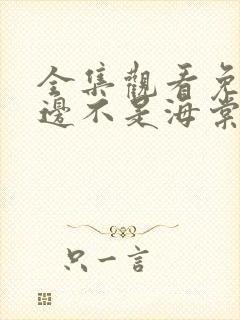 全集觀看免
邊不是海棠
只一言